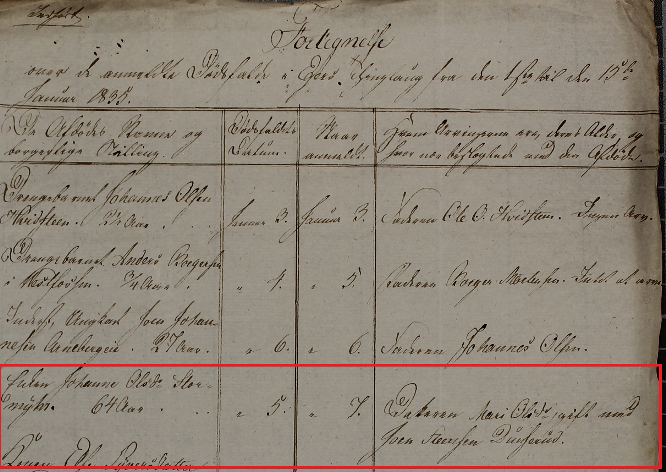 Indført.
Fortegnelse
over de anmeldte Dødsfalde i Egers Thinglaug fra den 1ste til den 15de
Januar 1835.
De Afdødes Navne og
borgerlige Stilling.
Dødsfaldets
Datum.
Naar
anmeldt.
Hvem Arvingerne ere, deres Alder, og
hvor nær beslægtede med den Afdøde.
Drengebarnet Johannes Olsen
Hvidsteen. 2½ Aar.
Januar 3.
Januar 3.
Faderen Ole O. Hvidsteen. Ingen Arv.
Drengebarnet Anders
i Aar.
" 4.
" 5.
Faderen Intet at arve
Inderst, Ungkarl Joen Johan-
nesen 27 Aar.
" 6.
" 6.
Faderen Johannes Olsen.
Enken Johanne Olsdr Stor-
64 Aar
" 5.
" 7.
Datteren Mari Olsdr, gift med
Joen